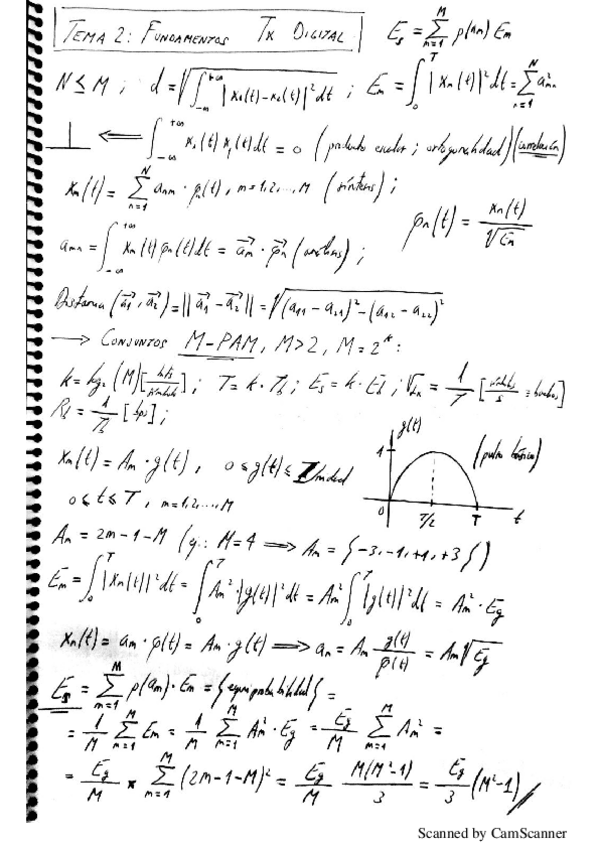 TEMA 2: FUNDAMENTOS TX DIGITAL
E_s = Σ_{m=1}^{M} p(a_m) E_m
N ≤ M ; d = √(∫_{-∞}^{+∞} |x_1(t) - x_2(t)|² dt) ; E_m = ∫_0^T |x_m(t)|² dt = Σ_{n=1}^{N} a²_{mn}
⊥ ⟸ ∫_{-∞}^{+∞} x_i(t) x_j(t) dt = 0 (producto escalar ; ortogonalidad) (correlación)
x_m(t) = Σ_{n=1}^{N} a_{mn} · φ_n(t), m = 1, 2, ..., M (síntesis) ;
φ_n(t) = x_n(t) / √E_n
a_{mn} = ∫_{-∞}^{+∞} x_m(t) φ_n(t) dt = a_m · φ_n (análisis) ;
Distancia (a_1, a_2) = ||a_1 - a_2|| = √((a_11 - a_21)² - (a_12 - a_22)²)
→ CONJUNTOS M-PAM, M > 2, M = 2^k :
k = log_2 (M) [bits/símbolo] ; T = k · T_b ; E_s = k · E_b ; = 1/T [símbolos/s = baudios]
R_b = 1/T_b [bps] ;
g(t)
1
(pulso básico)
0 T/2 T t
x_m(t) = A_m · g(t), 0 ≤ g(t) ≤
0 ≤ t ≤ T, m = 1, 2, ..., M
A_m = 2m - 1 - M (ej.: M = 4 ⟹ A_m = {-3, -1, +1, +3})
E_m = ∫_0^T |x_m(t)|² dt = ∫_0^T A_m² · |g(t)|² dt = A_m² ∫_0^T |g(t)|² dt = A_m² · E_g
x_m(t) = a_m · φ(t) = A_m · g(t) ⟹ a_m = A_m g(t)/φ(t) = A_m √E_g
E_s = Σ_{m=1}^{M} p(a_m) · E_m = {equiprobabilidad} =
= 1/M Σ_{m=1}^{M} E_m = 1/M Σ_{m=1}^{M} A_m² · E_g = E_g/M Σ_{m=1}^{M} A_m² =
= E_g/M × Σ_{m=1}^{M} (2m - 1 - M)² = E_g/M M(M² - 1)/3 = E_g/3 (M² - 1)
Scanned by CamScanner